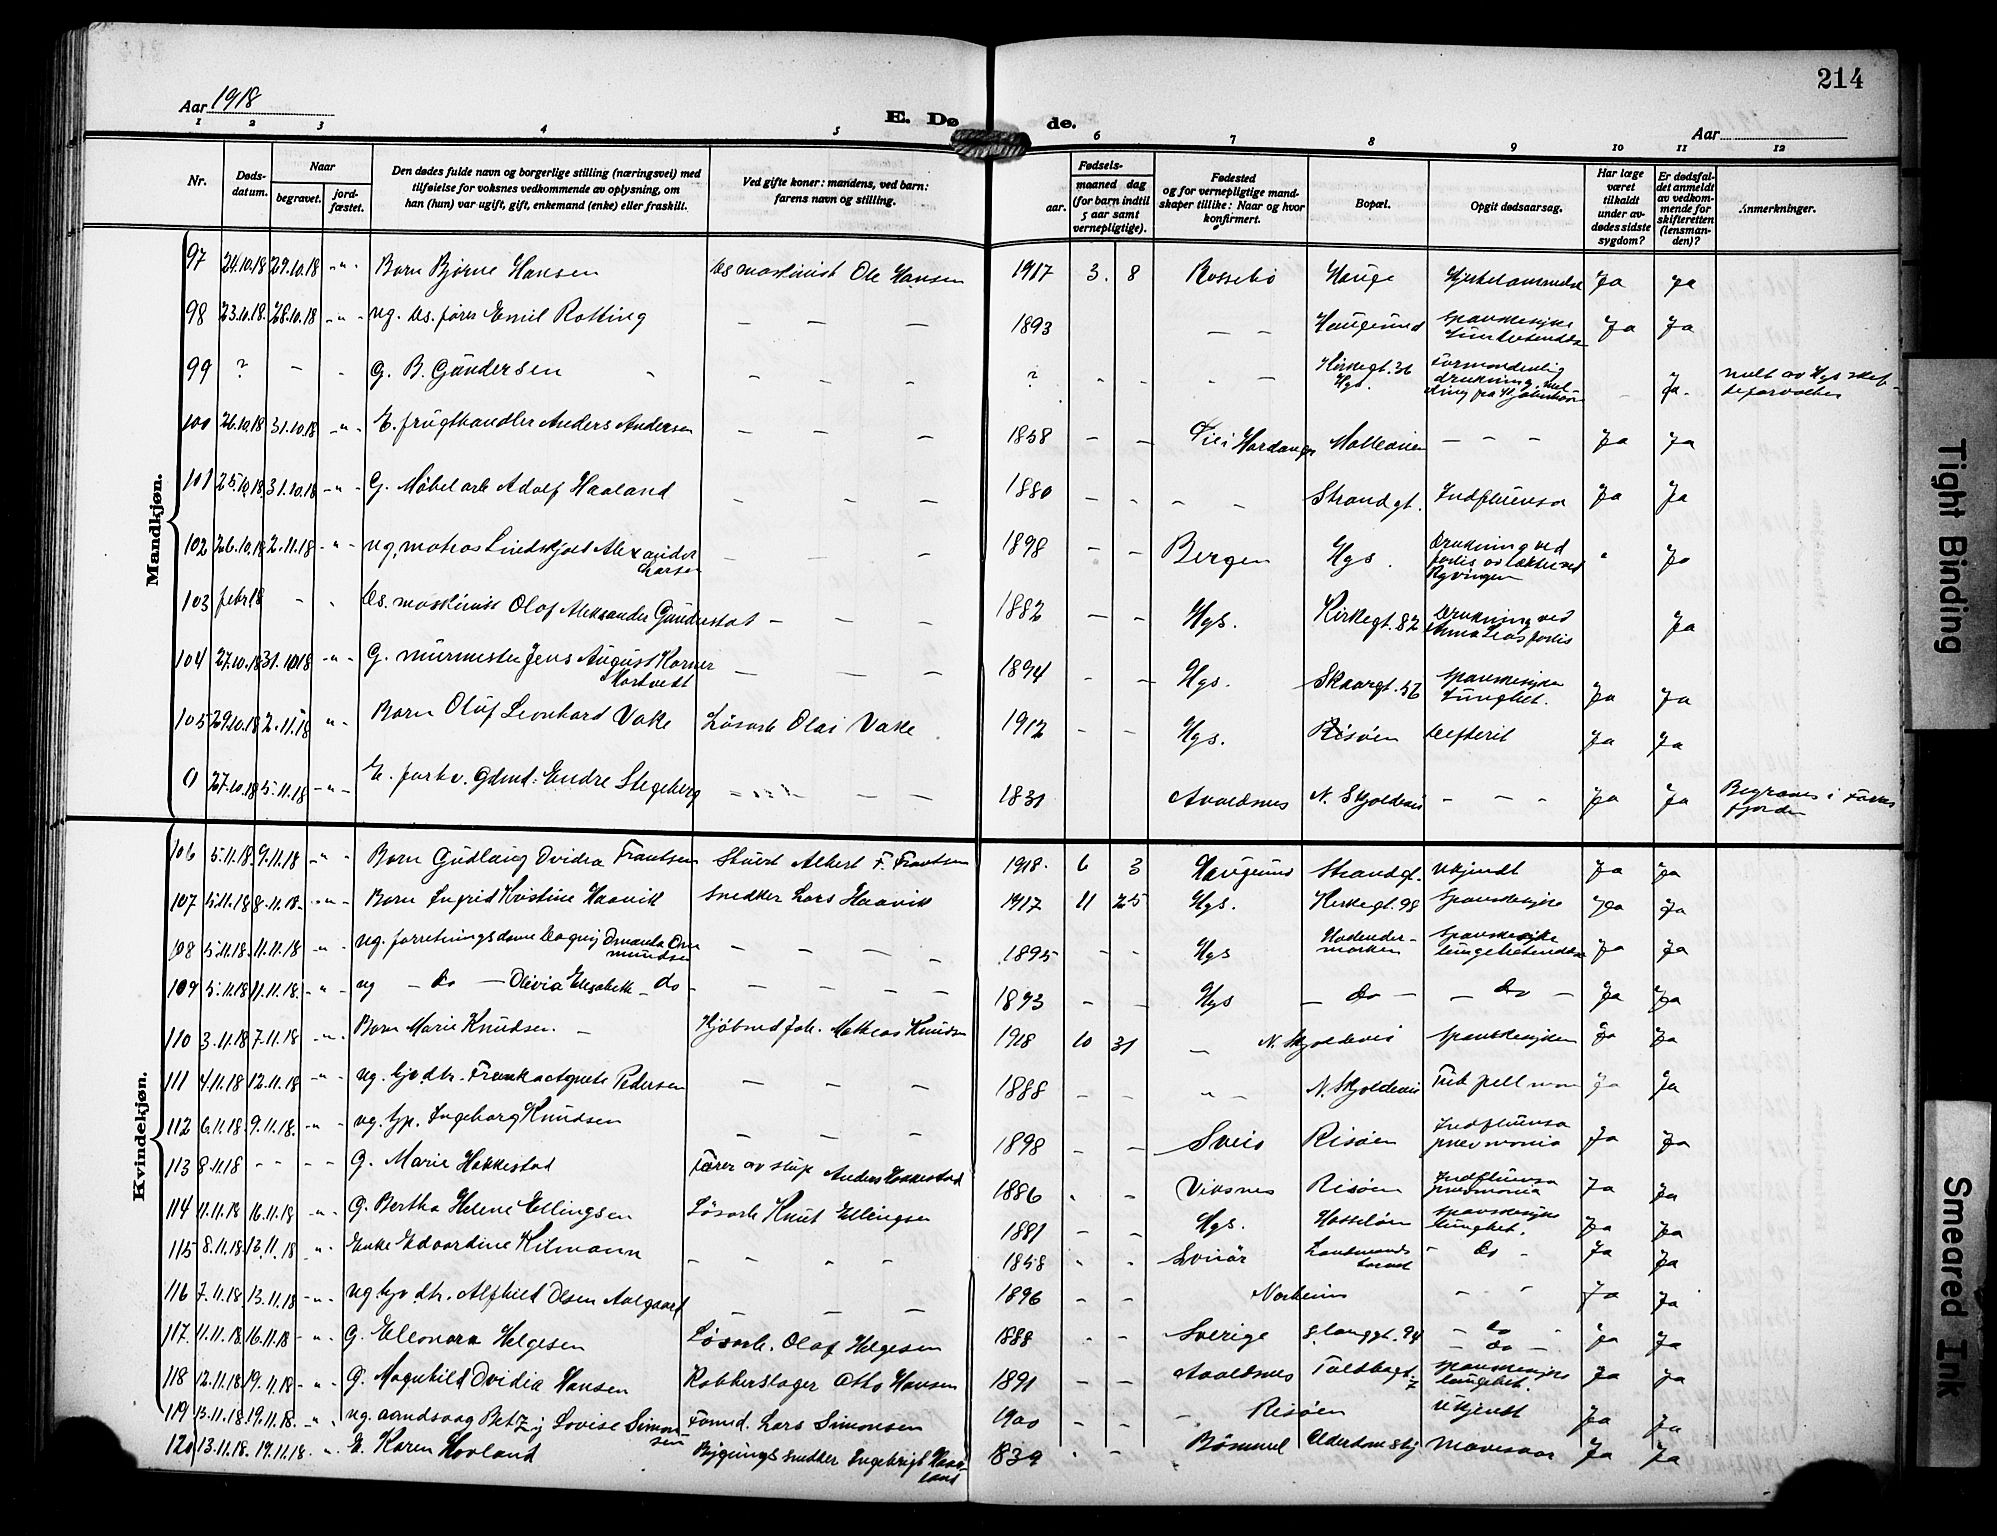 214
Aar 1918
E. Døde.
Aar
1 2 3 4 5 6 7 8 9 10 11 12
Nr.
Døds-
datum.
Naar
begravet.
jord-
fæstet.
Den dødes fulde navn og borgerlige stilling (næringsvei) med
tilføielse for voksnes vedkommende av oplysning, om
han (hun) var ugift, gift, enkemand (enke) eller fraskilt.
Ved gifte koner: mandens, ved barn:
farens navn og stilling.
Fødsels-
aar.
maaned dag
(for barn indtil
5 aar samt
vernepligtige).
Fødested
og for vernepligtige mand-
skaper tillike: Naar og hvor
konfirmert.
Bopæl.
Opgit dødsaarsag.
Har læge
været
tilkaldt
under av-
dødes sidste
sygdom?
Er dødsfal-
det anmeldt
av vedkom-
mende for
skifteretten
(lensman-
den)?
Anmerkninger.
Mandkjøn.
97 24.10.18 29.10.18 -"- Barn Bjørne Hansen Ds maskinist Ole Hansen 1917 3. 8 Rossebø Hauge Ja Ja
98 23.10.18. 28.10.18 -"- ug. Ds. fører Emil Rotting — — — 1893 — — Haugesund Spanskesyke Ja Ja
99 ? - - G. B. Gundersen ? - - - - Kirkegt. 36
Hgs. Formodentlig
drukning Ja.
100 26.10.18 31.10.18 -"- E. frugthandler Anders Andersen — — — 1858 — — i Hardanger — - - Ja Ja
101 25.10.18 31.10.18 -"- G. Møbelarb Adolf Haaland — — — 1880 - - - - Strandgt. Indfluensa Ja Ja
102 26.10.18 2.11.18 -"- ug. matros Lindskjold Alexander
Larsen — — — 1898 - - Bergen Hgs. Drukning ved
forlis av
Ryvingen Ja
103 febr. 18 - - Ds. maskinist Olaf Aleksander — — — 1882 — - Hgs. Kirkegt. 82 Drukning ved
forlis Ja
104 27.10.18 31.10.18 -"- G. murmester Jens August Korner
— — — 1894 - - Hgs. Skaargt. 56 Spanskesyke
Lungebet. Ja Ja
105 29.10.18 2.11.18 "- Barn Oluf Leonhard Vake Løsarb Olai Vake 1912 - - Hgs. Risøen Defterit Ja Ja
0 27.10.18 5.11.18 -"- E. forhv. Gdmd: Endre Stegeberg — — 1831 Avaldsnes N. Skjoldevei - - - Ja Ja Begraves i Førres
fjorden
Kvindekjøn.
106 5.11.18 9.11.18 -"- Barn Gudlaug Ovidia Frantsen Stuert Albert F. Frantsen 1918. 6 3 Haugesund Strandgt. ukjendt Ja Ja
107 5.11.18 8.11.18. -"- Barn Ingrid Kristine Haavik Snedker Lars Haavik 1917 11 25 Hgs. Kirkegt. 98 Spanskesyke Ja Ja
108 5.11.18 11.11.18 "- ug. forretningsdame Dagny Amanda Om
mundsen — — — — 1895 - - Hgs Spanskesyke
Ja Ja
109 5.11.18 11.11.18. -"- ug — do — Olivia Elisabeth — do - — — — — 1893 - - Hgs — do — — do — Ja Ja
110 3.11.18 7.11.18 -"- Barn Marie Knudsen. — Kjøbmd Joh. Mathias Knudsen 1918 10 31 — N. Skjoldevei Spanskesyken Ja Ja
111 4.11.18 12.11.18 "- ug. Agnete Pedersen — — — 1888 - - "- N. Skjoldevei Ja Ja
112 6.11.18. 9.11.18. -"- ug. tjp. Ingeborg Knudsen — — — 1898 - - Sveio Risøen Indfluensa
pneumonia Ja Ja
113 8.11.18 - - - - G. Marie Hakkestad Fører av slup Anders Hakkestad 1886 - - Viksnes Risøen Indfluensa
pneumonia Ja Ja
114 11.11.18 16.11.18 "- G. Bertha Helene Ellingsen Løsarb Knut Ellingsen 1881 - - Hgs. Hasseløen Spanskesyke
lungebet. Ja Ja
115 8.11.18 13.11.18 "- Enke Edvardine Kilmann - - - - 1858 - - - do - Ja Ja
116 7.11.18. 13.11.18 -"- ug Alfhild Olsen Aalgaard — — — 1896 - - Norheim - - Ja Ja
117. 11.11.18. 16.11.18 -"- G. Eleonora Helgesen Løsarb. Olaf Helgesen 1888 - - Sverige S. langgt. 94 - do -
- do - Ja Ja
118 12.11.18. 19.11.18 -"- G. Magnhild Ovidia Hansen Kobberslager Otto Hansen 1891 - - Avaldsnes Toldbogt.
7 Spanskesyke
lungebet. Ja Ja
119 13.11.18 19.11.18. "- ug. aandssvag Betzy Lovise Simon
sen Fømd. Lars Simonsen 1900 - - - Risøen Ukjendt Ja Ja
120 13.11.18. 19.11.18. "- E. Karen Hovland Bygningssnedker Ingebrigt Haav
land 1839 - - Bømmel Alderdomshj Mavesaar Ja Ja
Tight Binding
Smeared Ink